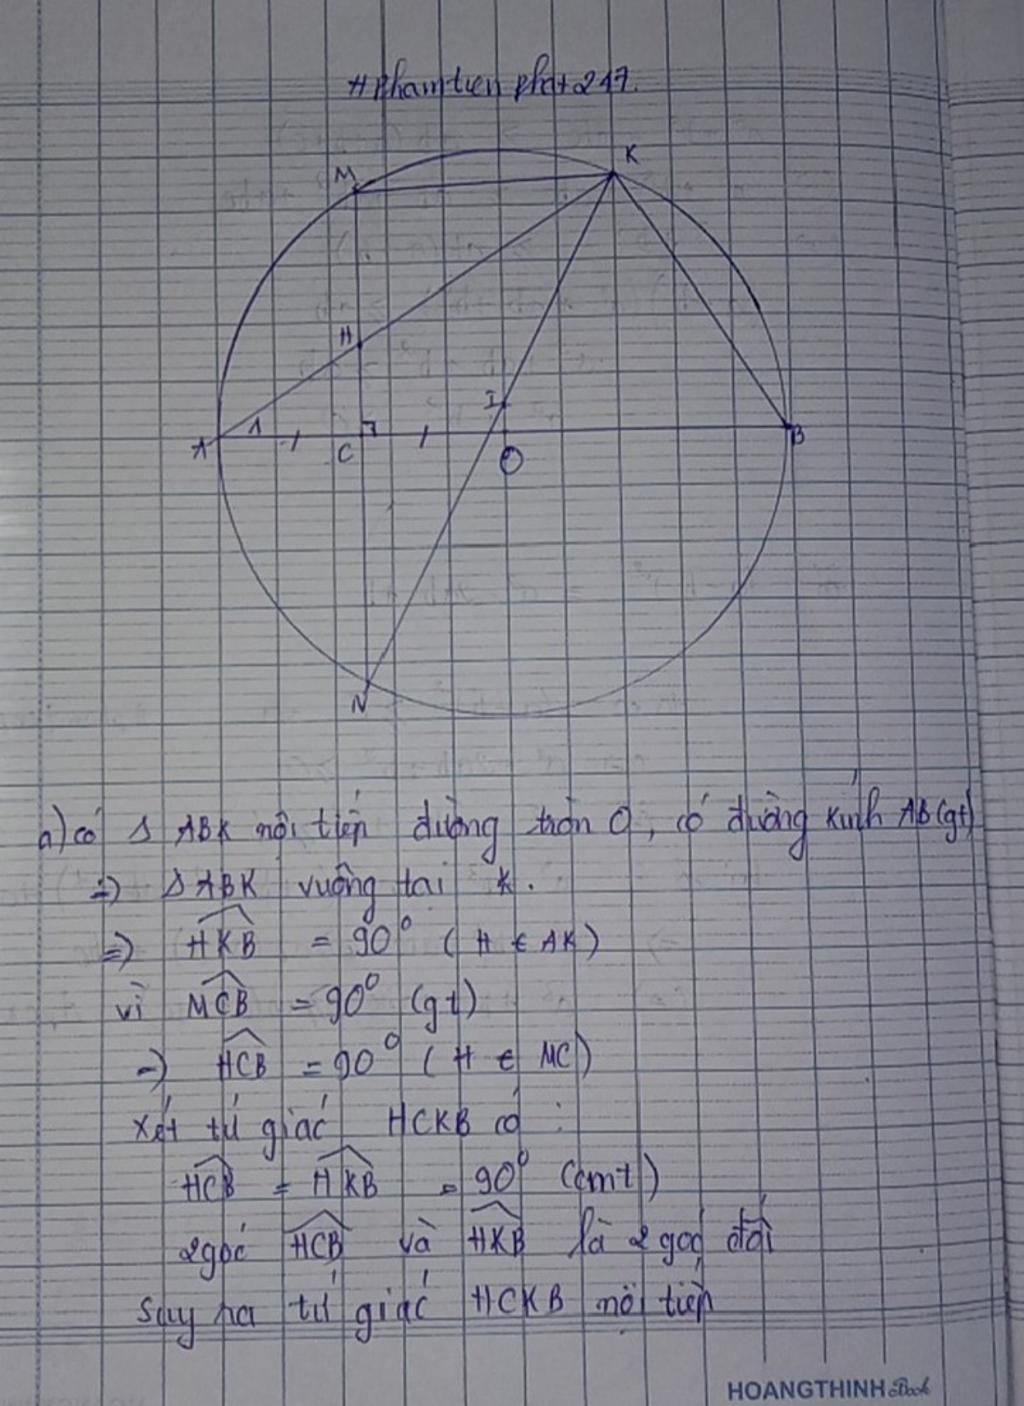 #Phamtien phat247.
M
K
H
I
A
1
C
O
B
N
a) có Δ ABK nội tiếp đường tròn O, có đường kính AB (gt)
=) Δ ABK vuông tại K.
=) HKB = 90° ( H ∈ AK )
vì MCB = 90° (gt)
=) HCB = 90° ( H ∈ MC )
xét tứ giác HCKB có :
HCB = HKB = 90° (cmt)
2góc HCB và HKB là 2 góc đối
suy ra tứ giác HCKB nội tiếp
HOANGTHINH Book